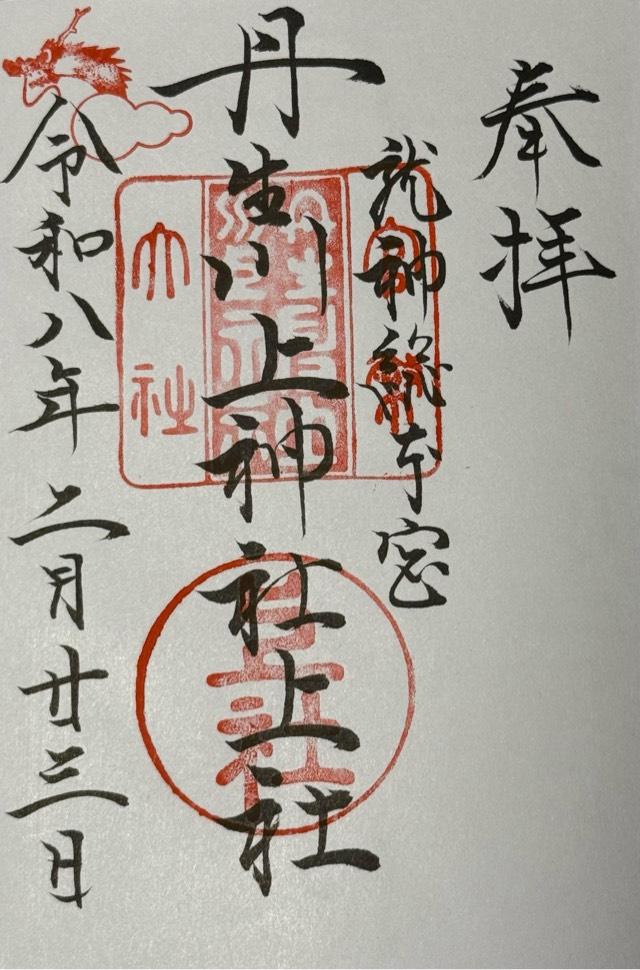 奉拝
龍神総本宮
丹生川上神社上社
令和八年二月廿三日
官幣
大社
上社